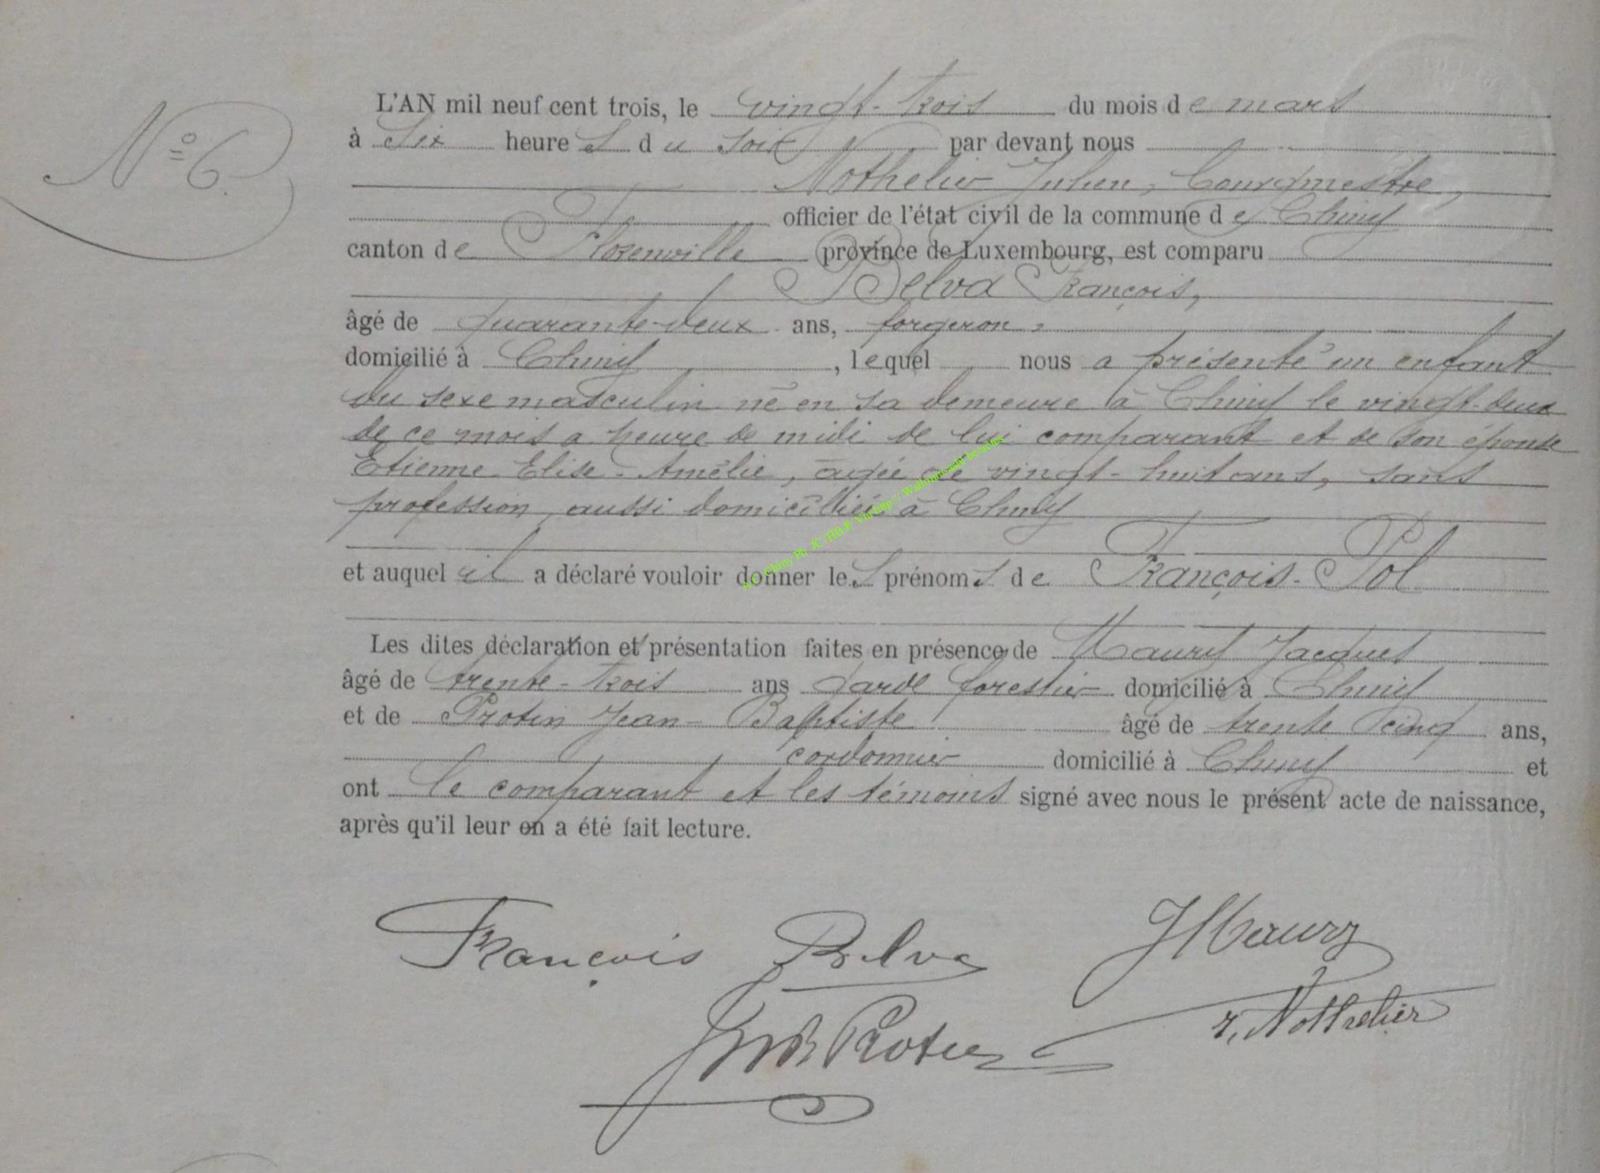 N° 6.
L'AN mil neuf cent trois, le vingt-trois du mois de mars
à six heures du soir par devant nous
Nothelier Julien, bourgmestre,
officier de l'état civil de la commune de Chiny
canton de Florenville province de Luxembourg, est comparu
Belva François,
âgé de quarante-deux ans, forgeron,
domicilié à Chiny, lequel nous a présenté un enfant
du sexe masculin né en sa demeure à Chiny le vingt-deux
de ce mois a heure de midi de lui comparant et de son épouse
Etienne Elise-Amélie, agée de vingt-huit ans, sans
profession, aussi domiciliée à Chiny
et auquel il a déclaré vouloir donner les prénoms de François-Pol
Les dites déclaration et présentation faites en présence de Maury Jacques
âgé de trente-trois ans garde forestier domicilié à Chiny
et de Protin Jean-Baptiste âgé de trente cinq ans,
cordonnier domicilié à Chiny et
ont le comparant et les témoins signé avec nous le présent acte de naissance,
après qu'il leur en a été fait lecture.
François Belva JMaury
JnB Protin J. Nothelier